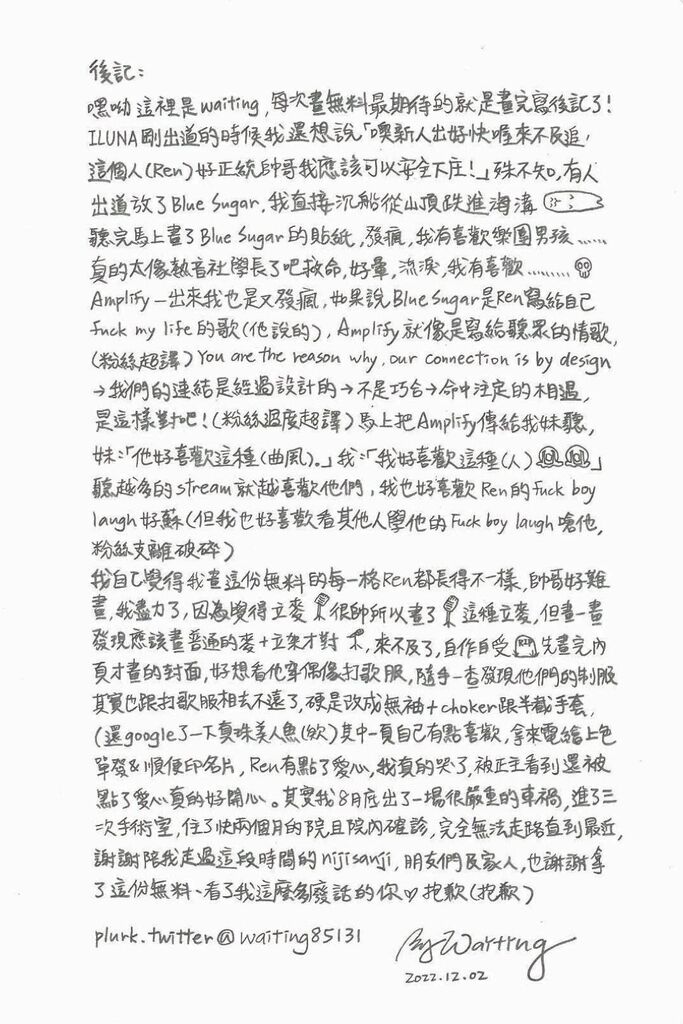 後記：
嘿呦這裡是waiting，每次畫無料最期待的就是畫完寫後記了！
ILUNA剛出道的時候我還想說「噢新人出好快喔來不及追，
這個人(Ren)好正統帥哥我應該可以安全下庄！」殊不知，有人
出道放了Blue Sugar，我直接沉船從山頂跌進海溝
聽完馬上畫了Blue Sugar的貼紙，發瘋，我有喜歡樂團男孩……
真的太像熱音社學長了吧救命，好暈，流淚，我有喜歡………
Amplify一出來我也是又發瘋，如果說Blue Sugar是Ren寫給自己
fuck my life的歌(他說的)，Amplify就像是寫給聽眾的情歌，
(粉絲超譯) You are the reason why, our connection is by design
→我們的連結是經過設計的→不是巧合→命中注定的相遇，
是這樣對吧！(粉絲過度超譯)馬上把Amplify傳給我妹聽，
妹：「他好喜歡這種(曲風)。」我：「我好喜歡這種(人)」
聽越多的stream就越喜歡他們，我也好喜歡Ren的fuck boy
laugh好蘇(但我也好喜歡看其他人學他的Fuck boy laugh嗆他，
粉絲支離破碎)
我自己覺得我畫這份無料的每一格Ren都長得不一樣，帥哥好難
畫，我盡力了，因為覺得立麥很帥所以畫了這種立麥，但畫一畫
發現應該畫普通的麥+立架才對，來不及了，自作自受先畫完內
頁才畫的封面，好想看他穿偶像打歌服，隨手一查發現他們的制服
其實也跟打歌服相去不遠了，硬是改成無袖+choker跟半截手套，
(還google了一下真珠美人魚(欸)其中一頁自己有點喜歡，拿來電繪上色
單發&順便印名片，Ren有點了愛心，我真的哭了，被正主看到還被
點了愛心真的好開心。其實我8月底出了一場很嚴重的車禍，進了三
次手術室，住了快兩個月的院且院內確診，完全無法走路直到最近，
謝謝陪我走過這段時間的nijisanji，朋友們及家人，也謝謝拿
了這份無料、看了我這麼多廢話的你♡抱歉(抱歉)
plurk.twitter@waiting85131
By Waiting
2022.12.02